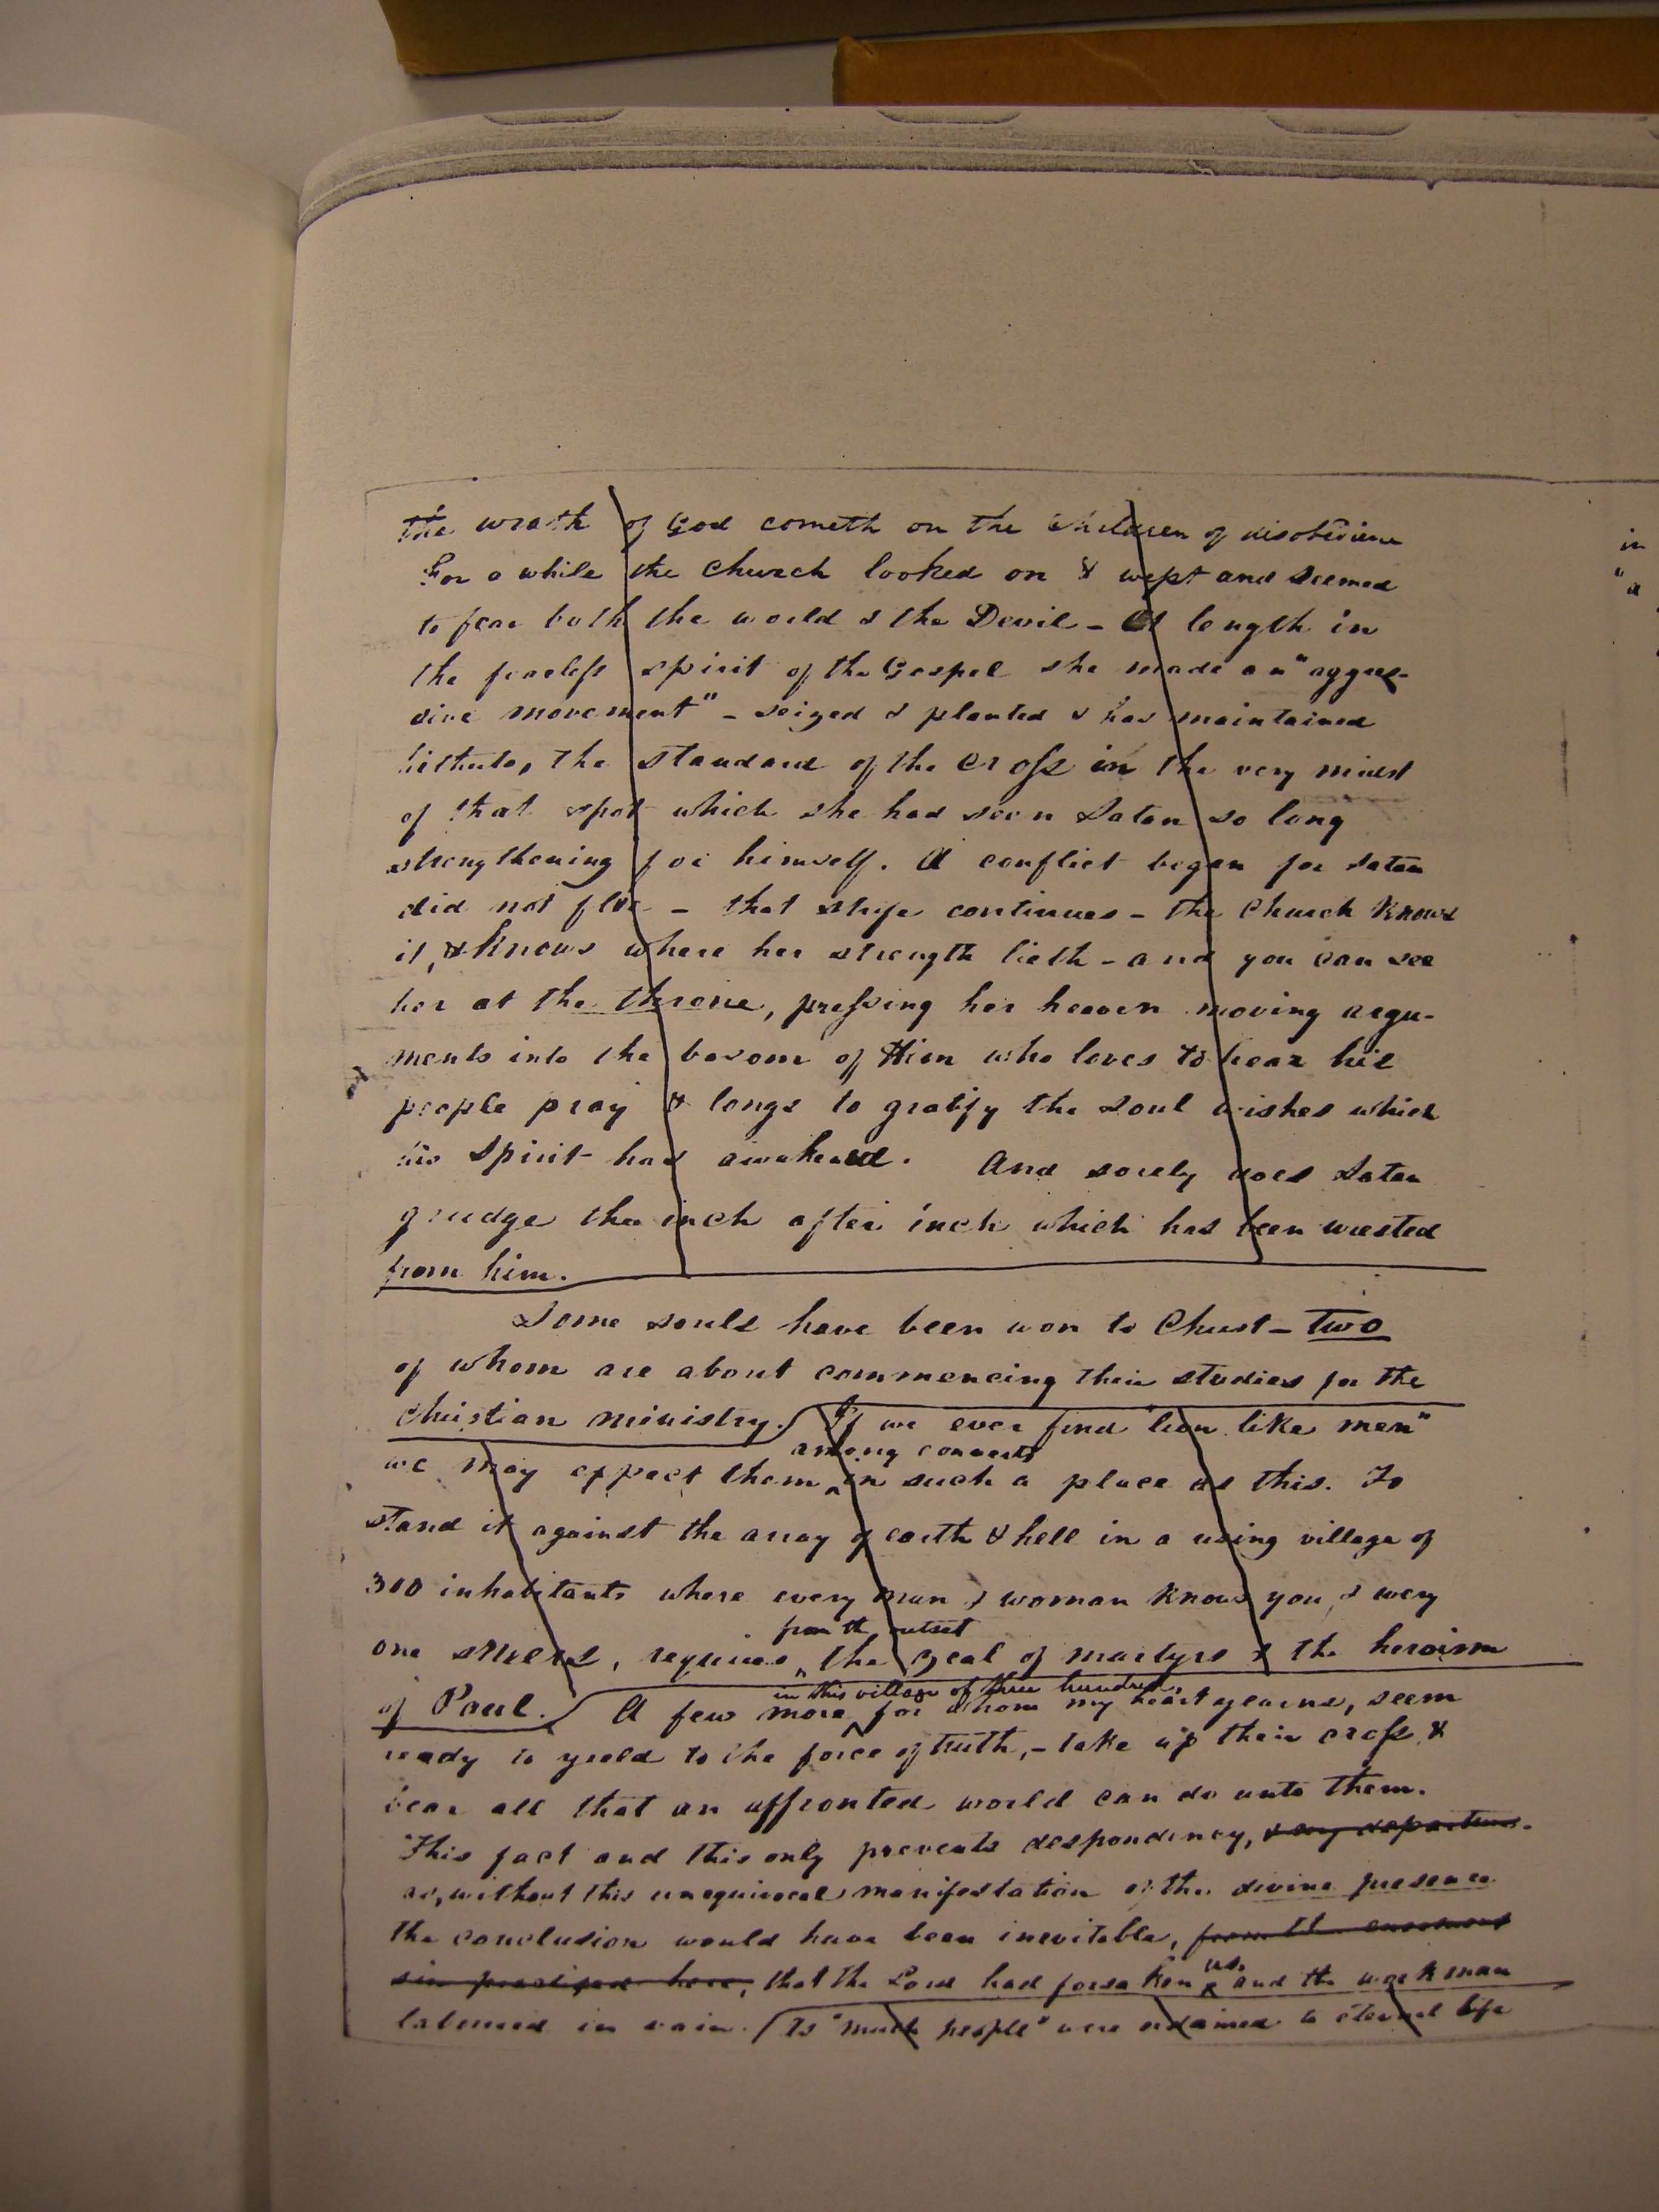 the wrath of God cometh on the children of disobedience
For a while the church looked on & wept and seemed
to fear both the world & the Devil - At length in
the fearless spirit of the Gospel she made an "aggres-
sive movement" - seized & planted & has maintained
hitherto, the standard of the cross in the very midst
of that spot which she had seen Satan so long
strengthening for himself. A conflict began for Satan
did not flee - that strife continues - the Church knows
it, & knows where her strength lieth - and you can see
her at the throne, pressing her heaven moving argu-
ments into the bosom of Him who loves to hear his
people pray & longs to gratify the soul wishes which
his Spirit has awakened. And sorely does Satan
grudge the inch after inch which has been wrested
from him.
Some souls have been won to Christ - two
of whom are about commencing their studies for the
Christian ministry. If we ever find "lion like men"
among converts
we may expect them in such a place as this. To
stand it against the array of earth & hell in a rising village of
300 inhabitants where every man & woman knows you, & every
from the outset
one sneers, requires the zeal of martyrs & the heroism
in this village of three hundred,
of Paul. A few more for whom my heart yearns, seem
ready to yield to the force of truth, - take up their cross &
bear all that an affronted world can do unto them.
This fact and this only prevents despondency, & my departure.
as, without this unequivocal manifestation of the divine presence
the conclusion would have been inevitable, from the enormous
us,
sin practised here, that the Lord had forsaken and the workman
laboured in vain. Is "much people" were ordained to eternal life
in
"a